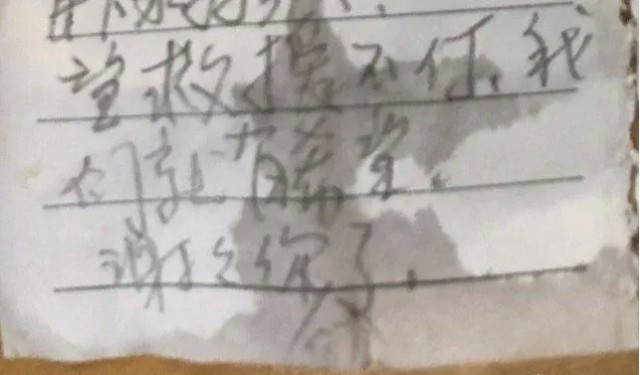 望救援不停,我
们就有希望.
谢谢你了.